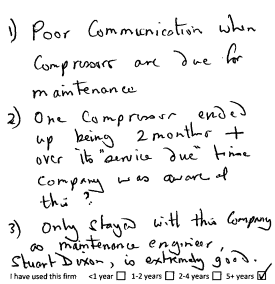 1) Poor Communication when
Compressors are due for
maintenance
2) One Compressor ended
up being 2 months +
over its "service due" time
Company was aware of
this?
3) Only stayed with this Company
as maintenance engineer,
Stuart Dixon, is extremely good.
I have used this firm <1 year ☐ 1-2 years ☐ 2-4 years ☐ 5+ years ☑